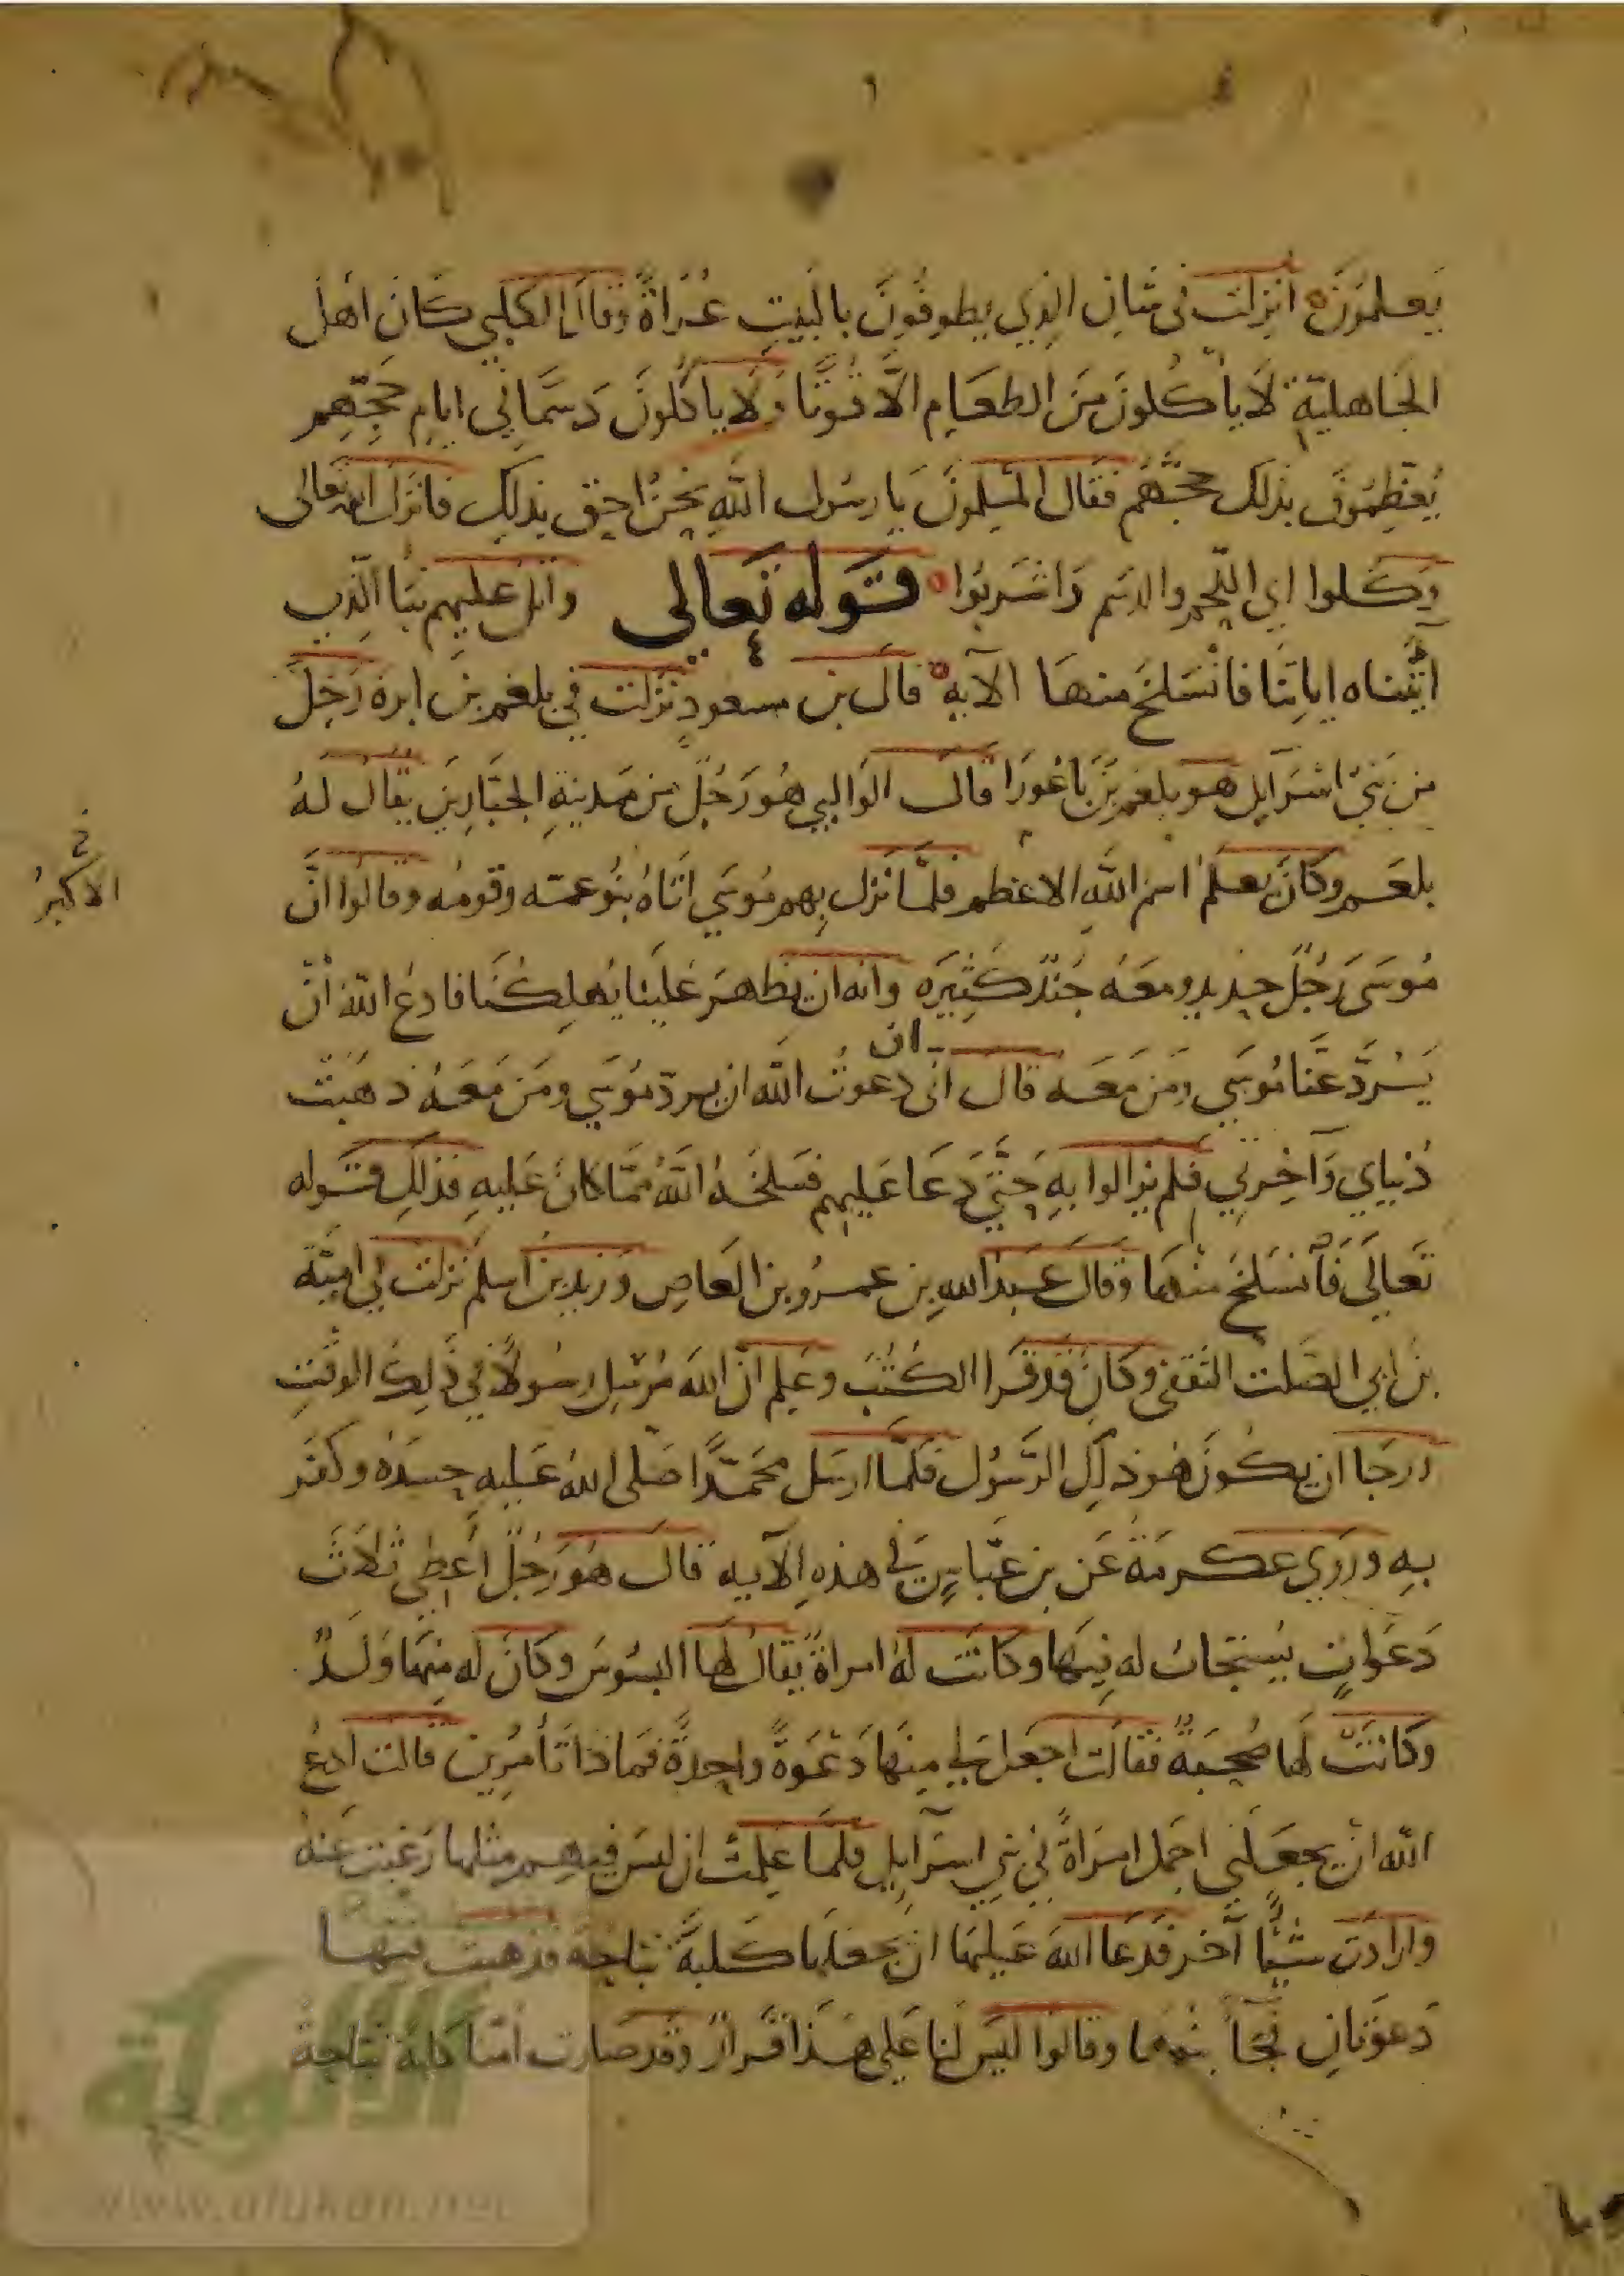 يَعلمُونَ انزلت في شان الذي يطوفُونَ بالبَيتِ عُرَاةً وقال الكلبي كانَ اهل
الجَاهليّةِ لَا يأكُلونَ مِنَ الطعَامِ الَّا قُوتًا وَلَا ياكُلونَ دَسَمًا في ايامِ حَجِّهِم
يُعَظِّمُونَ بذلك حجَّهُم فقال المسْلمونَ يا رسُول اللهِ نحنُ احق بذلِك فانزل الله تعالى
وَكُلوا اي اللّحم والدسَم وَاشرَبُوا قَوله تَعالى واتلُ عليهم نَبَأ الَّذِي
اتَيْناه اياتِنَا فانْسَلخَ منهَا الآيه قال بن مسعود نزلت في بلعم بن ابره رَجُلٌ
من بَني اسْرَايل هو بلعم بن بَاعُورَا قال الوَالبي هُوَ رَجُلٌ من مَدينةِ الجبَّارِينَ يقال لهُ
بلعَم وكانَ يَعلمُ اسْم اللهِ الاعظم فلمَّا نزل بهم مُوسَي اتَاهُ بنُو عمّه وقومُه وقالُوا انَّ
في
الاكبرُ
مُوسَى رَجُلٌ حديد ومَعَهُ جُندٌ كَثِيرَه وانه ان يظهَر عَلَينا يُهلِكنَا فادعُ اللهَ انْ
يَرُدَّ عنَّا مُوسَي ومَن مَعَه قال اني ان دعوتُ الله ان يرد مُوسَي ومَن مَعَهُ ذهَبَتْ
دُنياي وَآخِرتي فلم يزالوا بهِ حَتَّي دَعَا عَليهم فسَلخَهُ اللهُ ممَّا كانَ عَليهِ فذلِك قَوله
تَعالَى فَانسَلخَ منْهَا وقال عَبدُ الله بن عمرُو بن العَاصِ وَزيد بن اسلم نزلت في اميّة
بن ابي الصَّلت الثقفي وكانَ قد قرا الكُتُبَ وعَلِم انَّ اللهَ مُرسِل رسُولاً في ذلِك الوقتِ
ورجَا ان يكُونَ هُو ذلك الرَّسُول فلمَّا ارسَل محَمَّدًا صَلى اللهُ عَليهِ حسَدَهُ وكفَر
بهِ ورَوي عكرمَةُ عَن بن عبَّاسٍ في هذهِ الآيه قال هُوَ رَجُلٌ اُعطِي ثلاثَ
دَعَواتٍ يُستجَابُ له فيهَا وكانَتْ لهُ امراةٌ يقالُ لهَا البسُوس وكانَ له مِنهَا وَلدٌ
وكانَتْ لها صُحبَةٌ فقالت اجعَل لي مِنهَا دَعْوَةً واحِدَةً فمَاذا تَأمُرِين قالت ادعُ
الله انْ يجعَلني اجمَل امرَاةً في بني اسرَآيل فلمَّا عَلِمتْ ان ليسَ فيهم مثلها رَغبت عَنهُ
وارادت شَيًّا آخر فدَعَا اللهَ عَليهَا ان يجعَلهَا كلبَةً نبَاحةً فذهبت فيهَا
دَعوَتانِ فجَآ بنُوهَا وقالوا ليسَ لنا عَلي هَذا قرارٌ وقد صَارت امُّنا كلبَة نبَاحةً
www.alukah.net
الألوكة